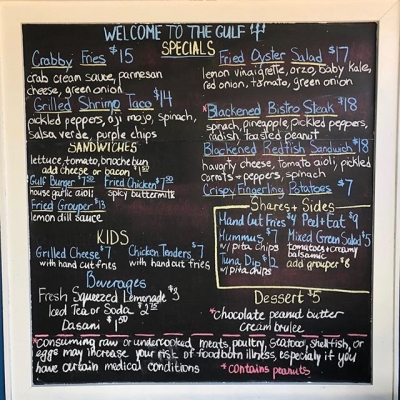 WELCOME TO THE GULF
SPECIALS
Crabby Fries $15
crab cream sauce, parmesan
cheese, green onion
Grilled Shrimp Taco $14
pickled peppers, aji mojo, spinach,
salsa verde, purple chips
SANDWICHES
lettuce, tomato, brioche bun
add cheese or bacon $1.50
Gulf Burger $7.50 Fried Chicken $7.50
house garlic aioli spicy buttermilk
Fried Grouper $13
lemon dill sauce
KIDS
Grilled Cheese $7 Chicken Tenders $7
with hand cut fries with hand cut fries
Beverages
Fresh Squeezed Lemonade $3
Iced Tea or Soda $2.75
Dasani $1.50
Fried Oyster Salad $17
lemon vinaigrette, orzo, baby kale,
red onion, tomato, green onion
*Blackened Bistro Steak $18
spinach, pineapple, pickled peppers,
radish, toasted peanut
Blackened Redfish Sandwich $18
havarty cheese, tomato aioli, pickled
carrots + peppers, spinach
Crispy Fingerling Potatoes $7
Shares + Sides
Hand Cut Fries $4 Peel + Eat $9
Hummus $7 Mixed Green Salad $5
w/ pita chips tomatoes + creamy
balsamic
Tuna Dip $12 add grouper $8
w/ pita chips
Dessert $5
*chocolate peanut butter
creme brulee
*consuming raw or undercooked meats, poultry, seafood, shellfish, or
eggs may increase your risk of foodborn illness, especially if you
have certain medical conditions *contains peanuts